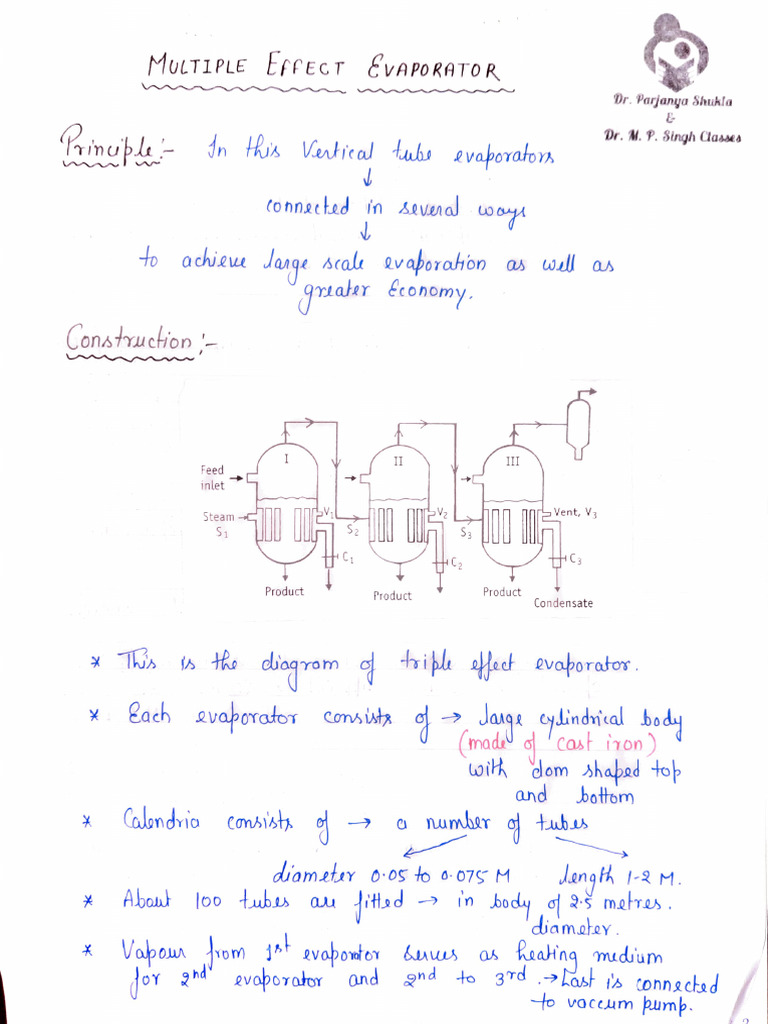 MULTIPLE EFFECT EVAPORATOR
Dr. Parjanya Shukla
&
Dr. M. P. Singh Classes
Principle:- In this Vertical tube evaporators
↓
connected in several ways
↓
to achieve large scale evaporation as well as
greater Economy.
Construction:-
I
II
III
Feed
inlet
Steam
S1
V1
S2
V2
S3
Vent, V3
C1
C2
C3
Product
Product
Product
Condensate
* This is the diagram of triple effect evaporator.
* Each evaporator consists of → large cylindrical body
(made of cast iron)
with dom shaped top
and bottom
* Calendria consists of → a number of tubes
diameter 0.05 to 0.075 M length 1-2 M.
* About 100 tubes are fitted → in body of 2.5 metres.
diameter.
* Vapour from 1st evaporator serves as heating medium
for 2nd evaporator and 2nd to 3rd. → Last is connected
to vaccum pump.